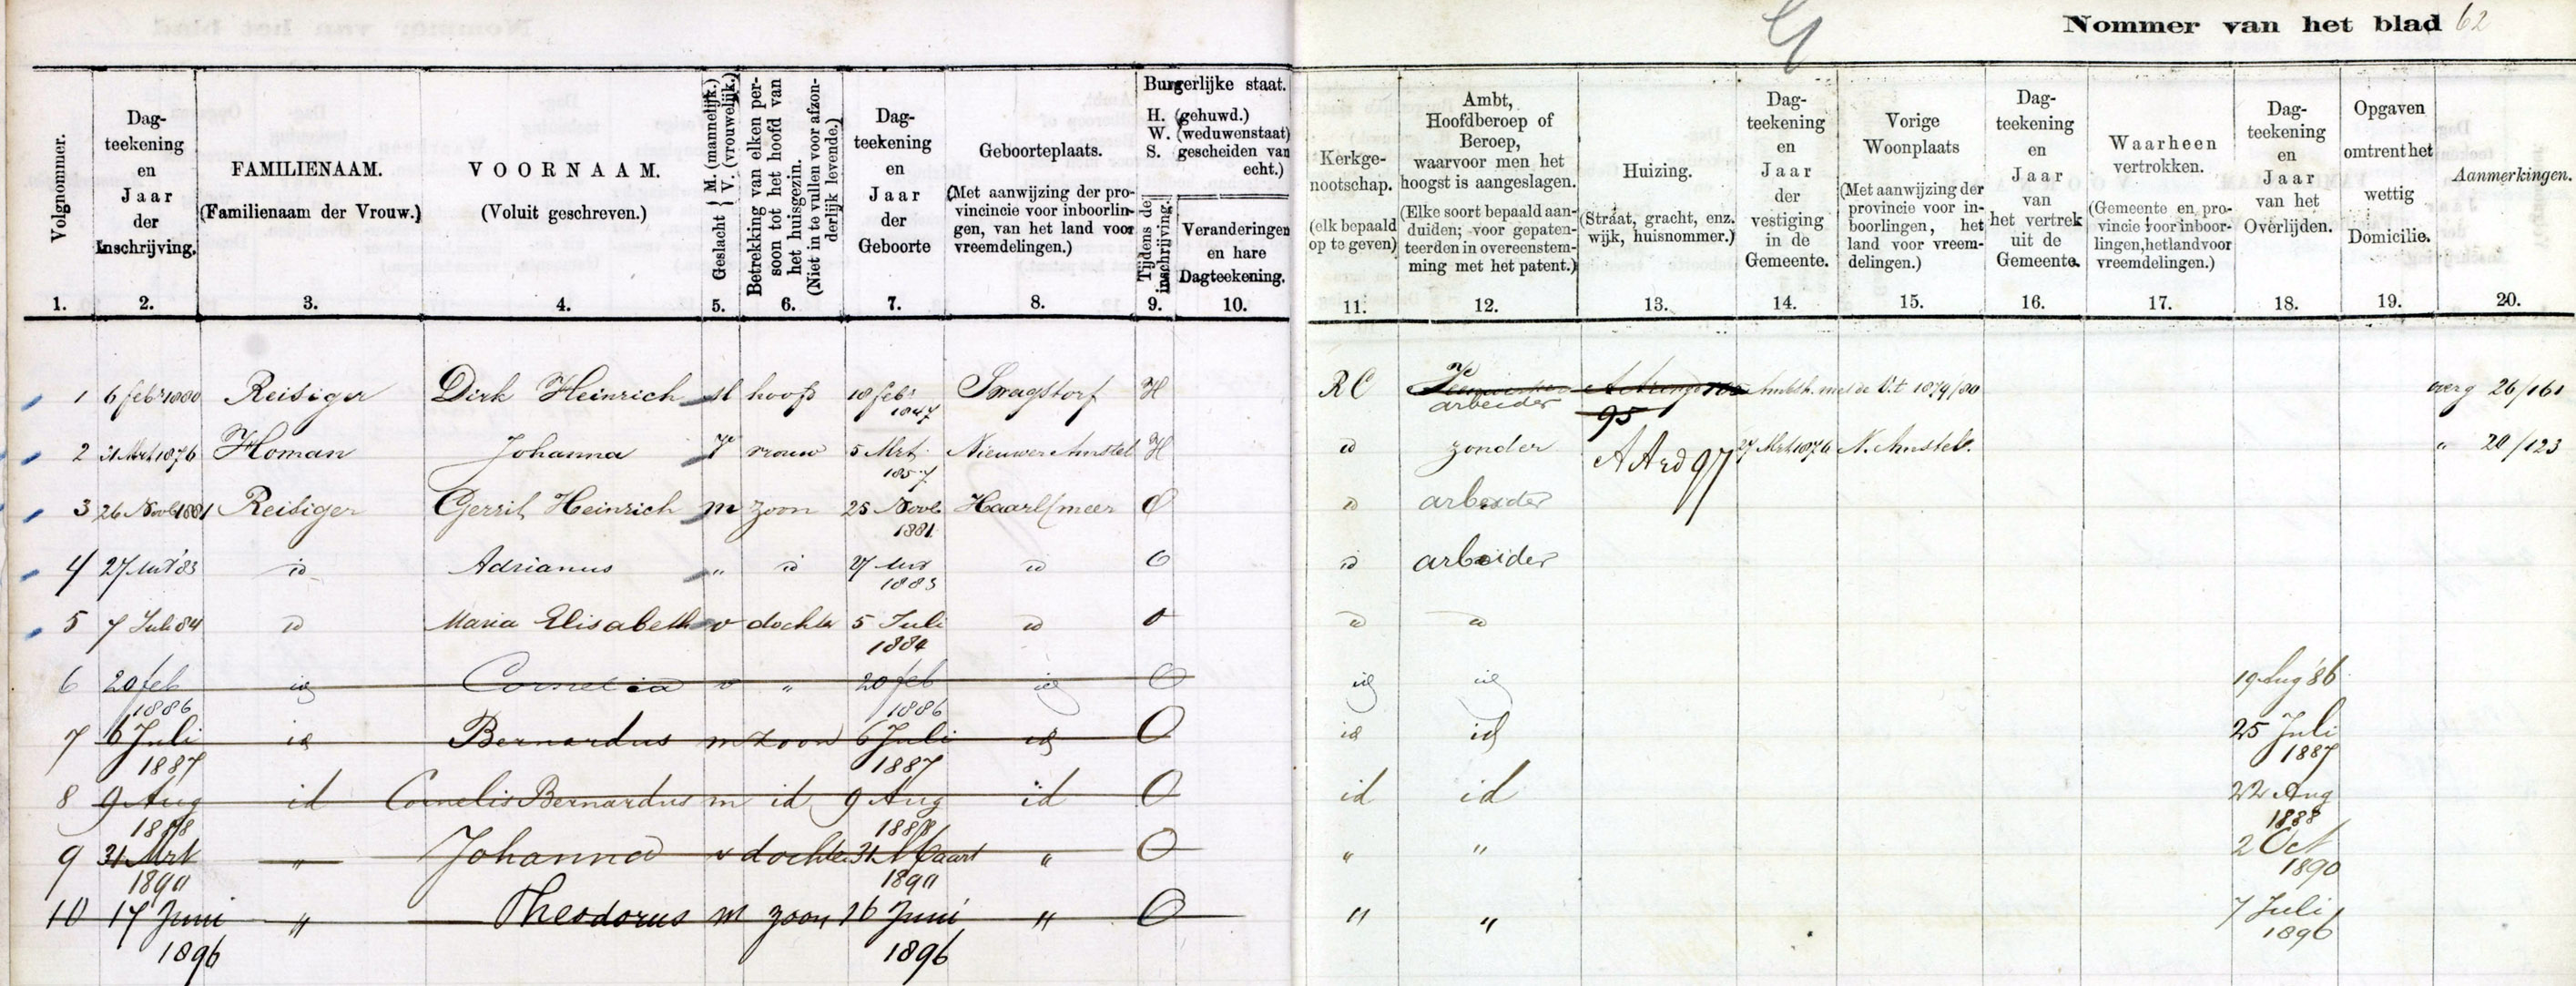 Nommer van het blad 62
Volgnommer.
1.
Dag-
teekening
en
Jaar
der
Inschrijving.
2.
FAMILIENAAM.
(Familienaam der Vrouw.)
3.
VOORNAAM.
(Voluit geschreven.)
4.
Geslacht { M. (mannelijk.)
V. (vrouwelijk.)
5.
Betrekking van elken per-
soon tot het hoofd van
het huisgezin.
(Niet in te vullen voor afzon-
derlijk levende.)
6.
Dag-
teekening
en
Jaar
der
Geboorte
7.
Geboorteplaats.
(Met aanwijzing der pro-
vincincie voor inboorlin-
gen, van het land voor
vreemdelingen.)
8.
Burgerlijke staat.
H. (gehuwd.)
W. (weduwenstaat)
S. gescheiden van
echt.)
Tijdens de
inschrijving.
9.
Veranderingen
en hare
Dagteekening.
10.
Kerkge-
nootschap.
(elk bepaald
op te geven)
11.
Ambt,
Hoofdberoep of
Beroep,
waarvoor men het
hoogst is aangeslagen.
(Elke soort bepaald aan-
duiden; voor gepaten-
teerden in overeenstem-
ming met het patent.)
12.
Huizing.
(Straat, gracht, enz.
wijk, huisnommer.)
13.
Dag-
teekening
en
Jaar
der
vestiging
in de
Gemeente.
14.
Vorige
Woonplaats
(Met aanwijzing der
provincie voor in-
boorlingen, het
land voor vreem-
delingen.)
15.
Dag-
teekening
en
Jaar
van
het vertrek
uit de
Gemeente.
16.
Waarheen
vertrokken.
(Gemeente en pro-
vincie voor inboor-
lingen, het land voor
vreemdelingen.)
17.
Dag-
teekening
en
Jaar
van het
Overlijden.
18.
Opgaven
omtrent het
wettig
Domicilie.
19.
Aanmerkingen.
20.
1 6 febr 1880 Reisiger Dirk Heinrich M hoofd 18 febr 1847 Swagstorf H RC arbeider 95 Ambsh. melde V.t 1879/80 overg 26/161
2 31 Mrt 1876 Homan Johanna V vrouw 5 Mrt 1857 Nieuwer Amstel H id zonder A Ard 97 27 Mrt 1876 N. Amstel. " 20/123
3 26 Novb 1881 Reisiger Gerrit Heinrich m zoon 25 Novb 1881 Haarl/meer O id arbeider
4 27 '83 id Adrianus " id 27 1883 id O id arbeider
5 7 Juli 84 id Maria Elisabeth v dochter 5 Juli 1884 id O id id
6 20 feb 1886 id Cornelia v " 20 feb 1886 id O id id 19 Aug '86
7 6 Juli 1887 id Bernardus m zoon 6 Juli 1887 id O id id 25 Juli 1887
8 9 Aug 1888 id Cornelis Bernardus m id 9 Aug 1888 id O id id 22 Aug 1888
9 31 Mrt 1890 " Johanna v dochter 31 Maart 1890 " O " " 2 Oct 1890
10 17 Juni 1896 " Theodorus m zoon 16 Juni 1896 " O " " 7 Juli 1896